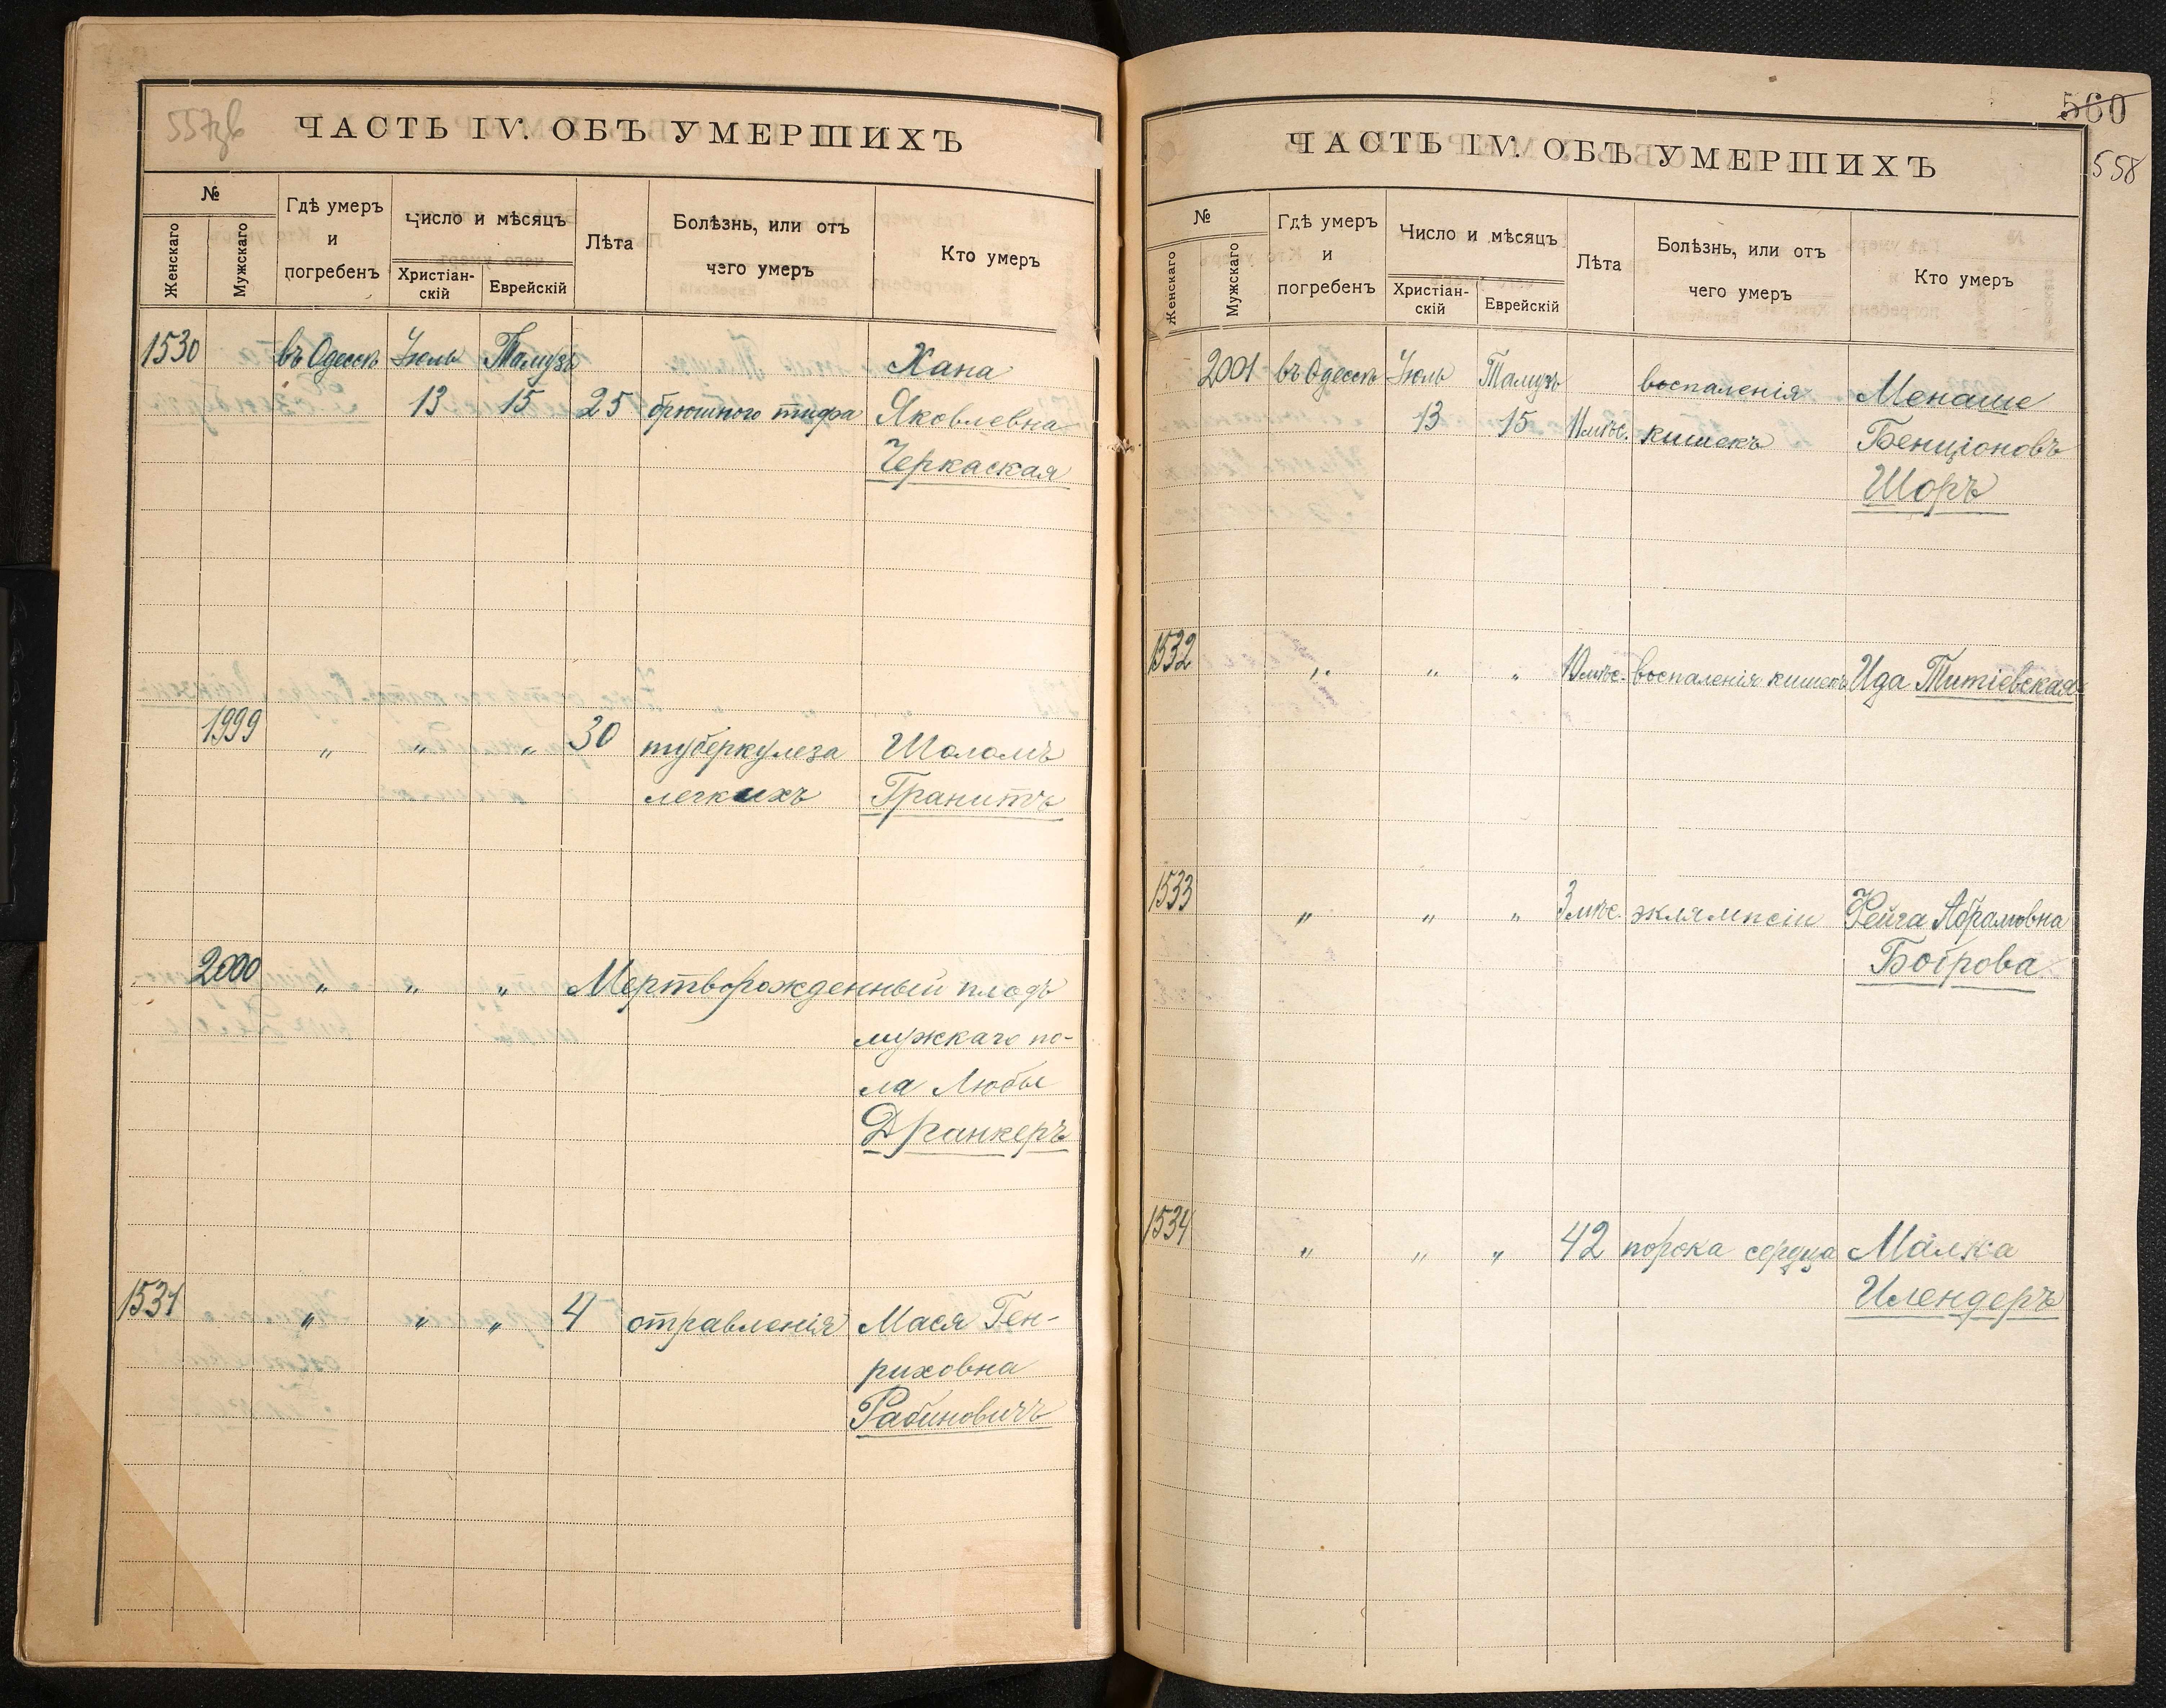 557об
ЧАСТЬ IV. ОБЪ УМЕРШИХЪ
№
Женскаго
Мужскаго
Гдѣ умеръ
и
погребенъ
Число и мѣсяцъ
Христіан-
скій
Еврейскій
Лѣта
Болѣзнь, или отъ
чего умеръ
Кто умеръ
1530 въ Одессѣ Іюль Тамузъ Хана
13 15 25 брюшного тифа Яковлевна
Черкаская
1999 " " " 30 туберкулеза Шоломъ
легкихъ Гранитъ
2000 " " " Мертворожденный плодъ
мужкаго по-
ла Любы
Дранкеръ
1531 " " " 4 отравленія Мася Ген-
риховна
Рабиновичъ
560
558
ЧАСТЬ IV. ОБЪ УМЕРШИХЪ
№
Женскаго
Мужскаго
Гдѣ умеръ
и
погребенъ
Число и мѣсяцъ
Христіан-
скій
Еврейскій
Лѣта
Болѣзнь, или отъ
чего умеръ
Кто умеръ
2001 въ Одессѣ Іюль Тамузъ воспаленія Менаше
13 15 11 мѣс. кишекъ Бенціоновъ
Шоръ
1532 " " " 10 мѣс. воспаленія кишекъ Ида Титіевская
1533 " " " 3 мѣс. эклямпсіи Фейга Абрамовна
Боірова
1534 " " " 42 порока сердца Малка
Илендеръ